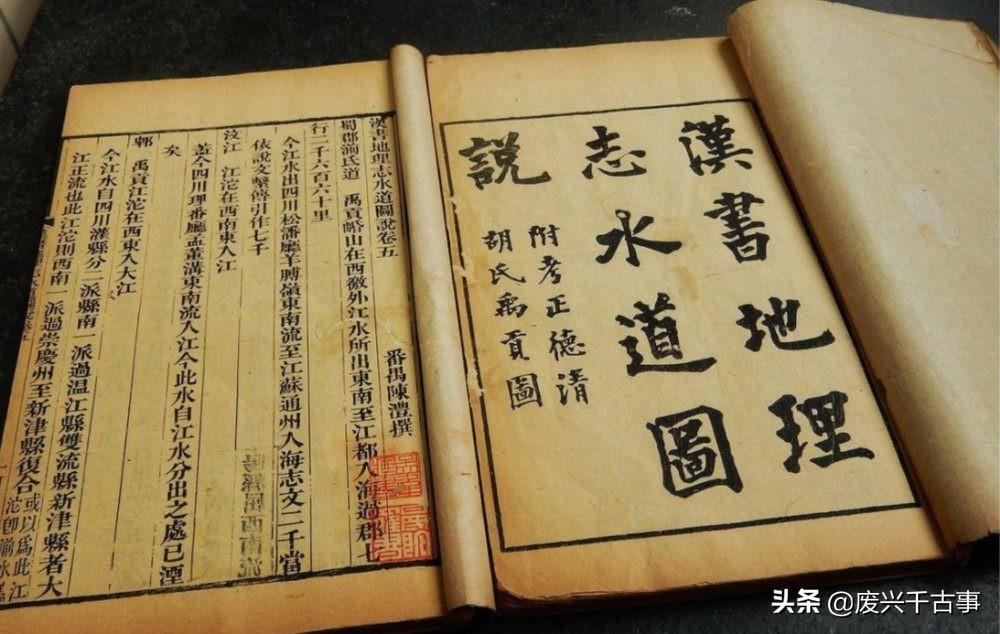 漢書地理
志水道圖
說
附考正德清
胡氏禹貢圖
漢書地理志水道圖說卷五
番禺陳澧撰
蜀郡湔氏道　禹貢㟭山在西徼外江水所出東南至江都入海過郡七
行二千六百六十里
今江水出四川松潘廳羊膊嶺東南流至江蘇通州入海志文二千當
依說文繫傳引作七千
汶江　江沱在西南東入江
蓋今四川理番廳孟董溝東南流入江今此水自江水分出之處已湮
矣
郫　禹貢江沱在西東入大江
今江水自四川灌縣分二派縣南一派過温江縣雙流縣新津縣者大
江正流也此江沱則西南一派過崇慶州至新津縣復合或以爲此江
沱卽湔水
头条 @废兴千古事